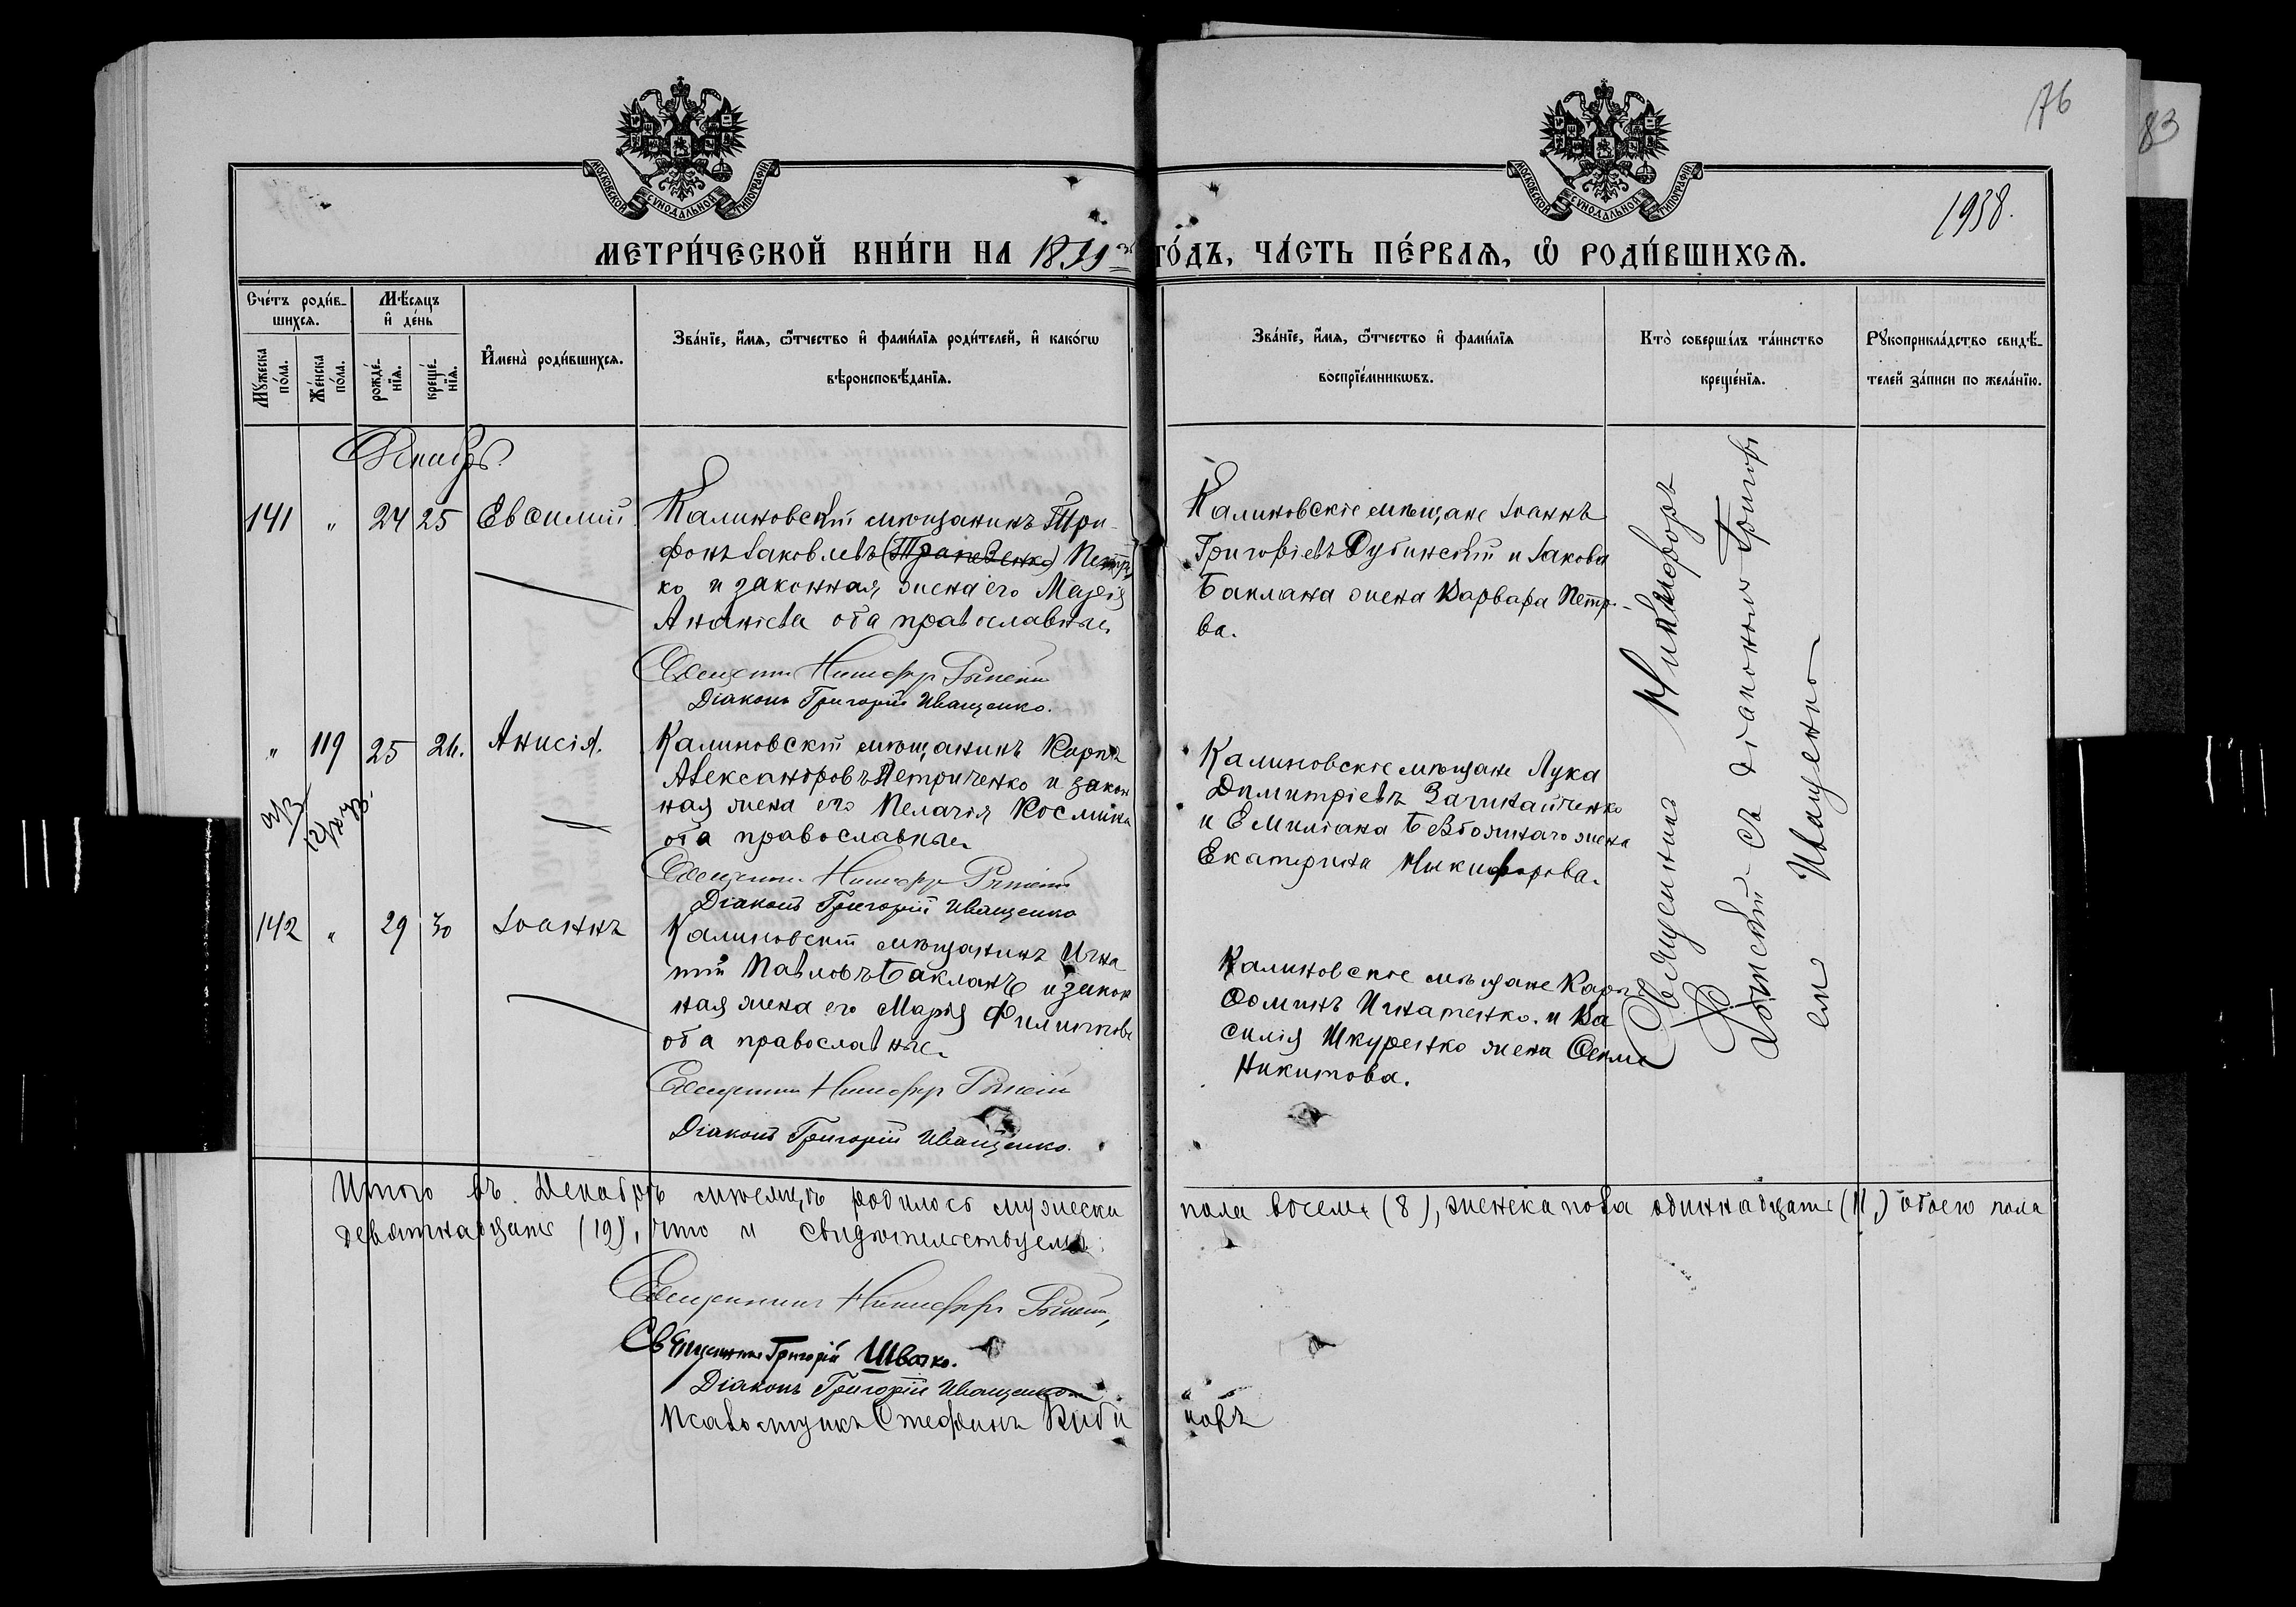 76
83
1938.
МОСКОВСКОЙ СѴНОДАЛЬНОЙ ТИПОГРАФІИ
МОСКОВСКОЙ СѴНОДАЛЬНОЙ ТИПОГРАФІИ
МЕТРИ́ЧЕСКОЙ КНИ́ГИ НА 1899й ГО́ДЪ, ЧА́СТЬ ПЕ́РВАѦ, Ѡ҆ РОДИ́ВШИХСѦ.
Сче́тъ роди́в-
шихсѧ.
Мꙋ́жеска
по́ла.
Же́нска
по́ла.
Мѣ́сѧцъ
и҆ де́нь
рожде́-
нїѧ.
креще́-
нїѧ.
И҆мена̀ роди́вшихсѧ.
Зва́нїе, и҆́мѧ, ѻ҆́тчество и҆ фами́лїѧ роди́телей, и҆ како́гѡ
вѣроисповѣ́данїѧ.
Зва́нїе, и҆́мѧ, ѻ҆́тчество и҆ фами́лїѧ
воспрїе́мникѡвъ.
Кто̀ соверши́лъ та́инство
креще́нїѧ.
Рꙋкоприкла́дство свидѣ́-
телей за́писи по жела́нїю.
Декабрь.
141 " 24 25 Евѳимій
Калиновскій мѣщанинъ Три-
фонъ Іаковлевъ (Трапезенко) Петри
ко и законная жена его Марія
Ананіева оба православные
Священникъ Никифоръ
Діаконъ Григорій Иващенко.
Калиновскіе мѣщане Іоаннъ
Григоріевъ Дубинскій и Іакова
Баклана жена Варвара Петро-
ва.
" 119 25 26. Анисія.
Калиновскій мѣщанинъ Карпъ
Александровъ Петриченко и закон
ная жена его Пелагія Космина
оба православные
Священникъ Никифоръ
Діаконъ Григорій Иващенко
Калиновскіе мѣщане Лука
Димитріевъ
и Емиліана жена
Екатерина Никифорова.
142 " 29 30 Іоаннъ
Калиновскій мѣщанинъ Игна
тій Павловъ Бакланъ и закон
ная жена его Марія Филиппова
оба православные
Священникъ Никифоръ
Діаконъ Григорій Иващенко.
Калиновскіе мѣщане Карпъ
Ѳоминъ Игнатенко и Ва
силія Шкуренко жена Ѳекла
Никитова.
Священникъ Никифоръ
съ діакономъ Григорі
ем Иващенко
Итого въ Декабрѣ мѣсяцѣ родилось мужеска пола восемь (8), женска пола одиннадцать (11,) обоего пола
девятнадцать (19), что и свидѣтельствуемъ:
Священникъ Никифоръ
Священникъ Григорій Швачко.
Діаконъ Григорій Иващенко
Псаломщикъ Стефанъ